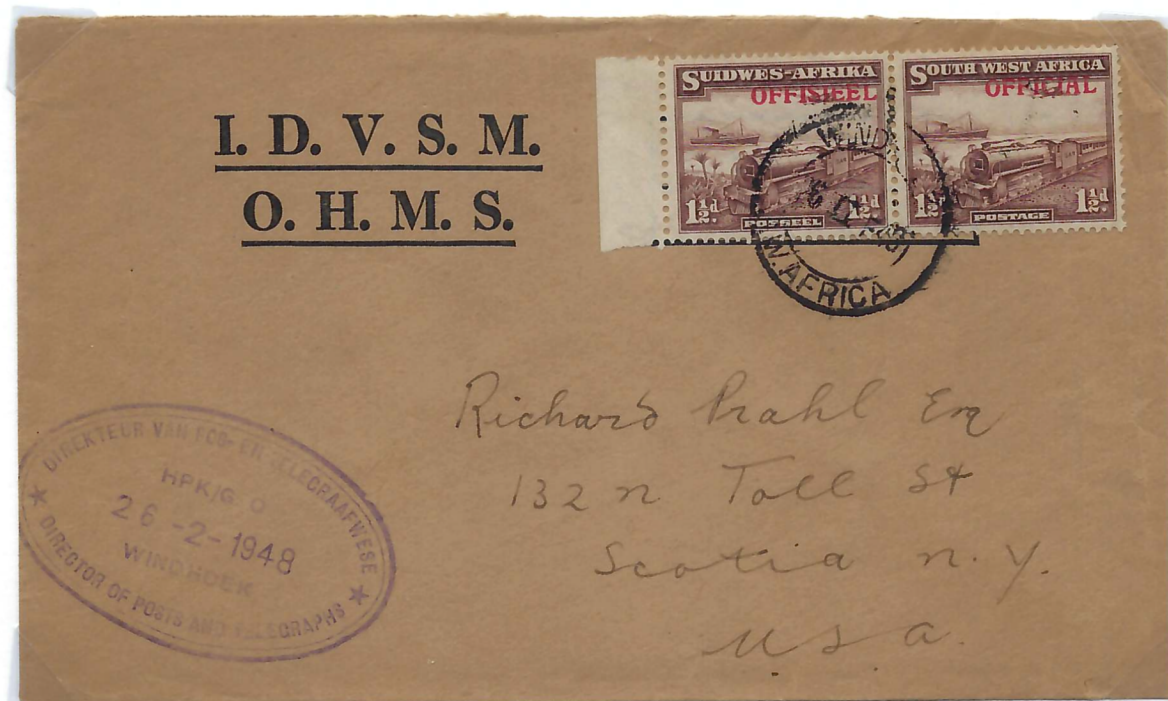 I. D. V. S. M.
O. H. M. S.
SUIDWES-AFRIKA
OFFISIEEL
1½d. 1½d.
POSSEEL
SOUTH WEST AFRICA
OFFICIAL
1½d. 1½d.
POSTAGE
WIND
W. AFRICA
Richard Prahl Esq
132 N Toll St
Scotia N. Y.
U S A.
DIREKTEUR VAN POS- EN TELEGRAAFWESE
HPK/G O
26-2-1948
WINDHOEK
DIRECTOR OF POSTS AND TELEGRAPHS